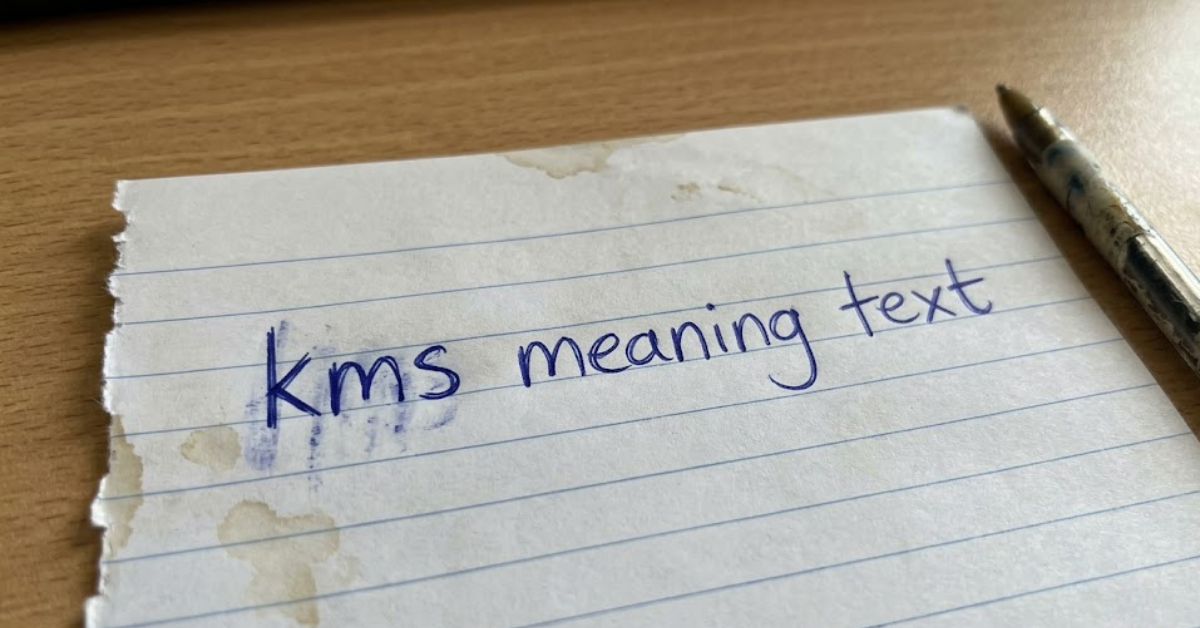 kms meaning text